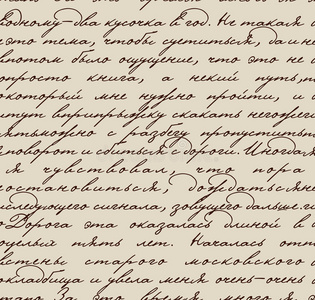 одному-два кусочка в год. Не такая
это тема, чтобы суетиться, да и не
потом было ощущение, что это не
просто книга, а некий путь,
который мне нужно пройти, и
тут вприпрыжку скакать негоже
можно с разбегу пропустить
поворот и сбиться с дороги. Иногда
я чувствовал, что пора
остановиться, дождаться
следующего сигнала, зовущего дальше.
Дорога эта оказалась длиной в
целых пять лет. Началась от
стены старого московского
кладбища и увела меня очень-очень
За это время много я